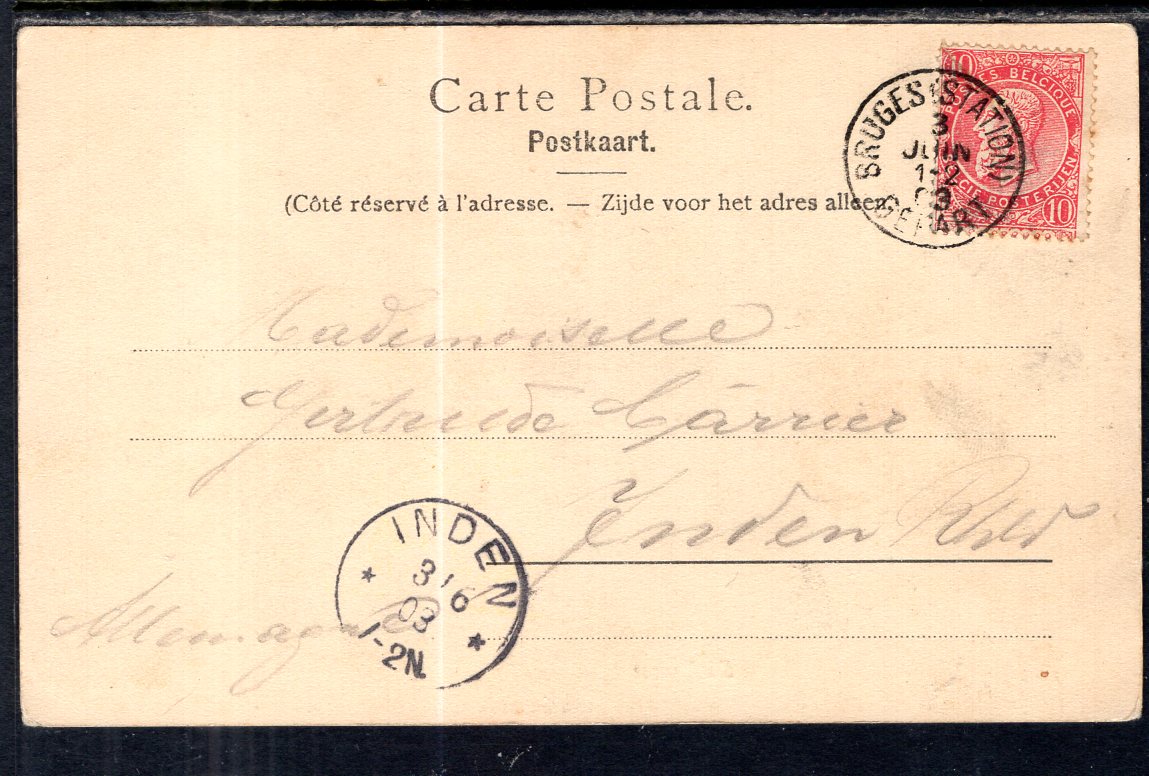 Carte Postale.
Postkaart.
(Côté réservé à l'adresse. — Zijde voor het adres alleen
10
POSTES BELGIQUE
SOCIÉTÉ POSTERIJEN
10
BRUGES (STATION)
3
JUIN
1-2
03
DEPART
Mademoiselle
Gertrude Carrier
Inden Rhld
Allemagne
INDEN
3/6
03
1-2N.